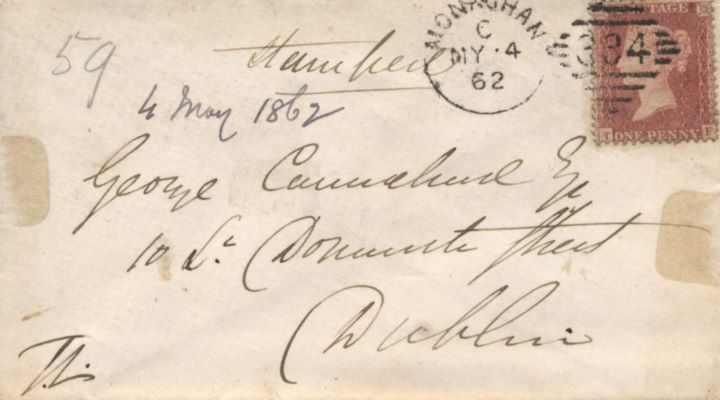 59
Stamped
4 May 1862
MONAGHAN
C
MY 4
62
334
POSTAGE
ONE PENNY
George Esq
10 Lr Dominick Street
Dublin